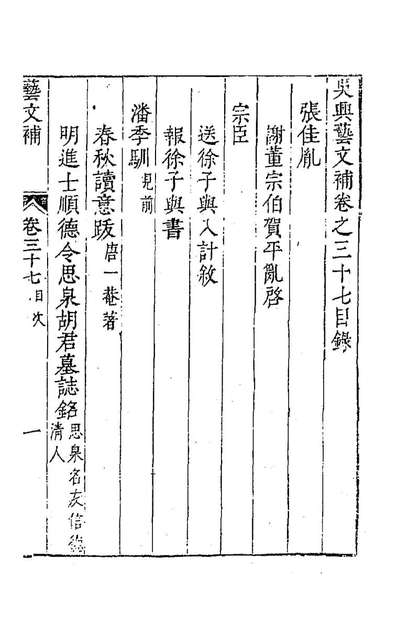 吳興藝文補卷之三十七目錄
張佳胤
謝董宗伯賀平亂啓
宗臣
送徐子與入計敘
報徐子與書
潘季馴見前
春秋讀意跋唐一菴著
明進士順德令思泉胡君墓誌銘思泉名友信德清人
藝文補
卷三十七目次
一